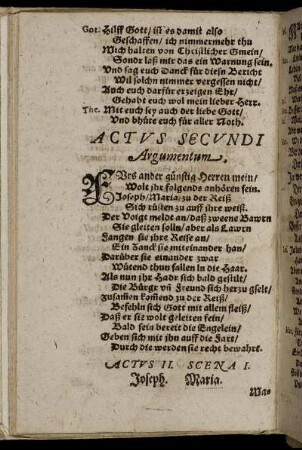 Got. Hilff Gott/ ist es damit also
Geschaffen/ ich nimmermehr thu
Mich halten von Christlicher Gmein/
Sondr laß mir das ein Warnung sein.
Vnd sag euch Danck für diesn Bericht
Wil solchn nimmer vergessen nicht/
Auch euch darfür erzeigen Ehr/
Gehabt euch wol mein lieber Herr.
The. Mit euch sey auch der liebe Gott/
Vnd bhüte euch für aller Noth.
ACTVS SECVNDI
Argumentum.
AVffs ander günstig Herren mein/
Wolt jhr folgends anhören fein.
Joseph/ Maria/ zu der Reiß
Sich rüsten zu auff jhre weiß.
Der Voigt meldt an/ daß zweene Bawrn
Sie gleiten solln/ aber als Lawrn
Fangen sie jhre Reise an/
Ein Zanck sie miteinander han/
Darüber sie einander zwar
Wütend thun fallen in die Haar.
Als nun jhr Hadr sich bald gestilt/
Die Bürgr vñ Freund sich herzu gselt/
Zusamen kommend zu der Reiß/
Befehln sich Gott mit allem fleiß/
Daß er sie wolt geleiten fein/
Bald sein bereit die Engelein/
Geben sich mit jhn auff die Fart/
Durch die werden sie recht bewahrt.
ACTVS II. SCENA I.
Joseph. Maria.
Was